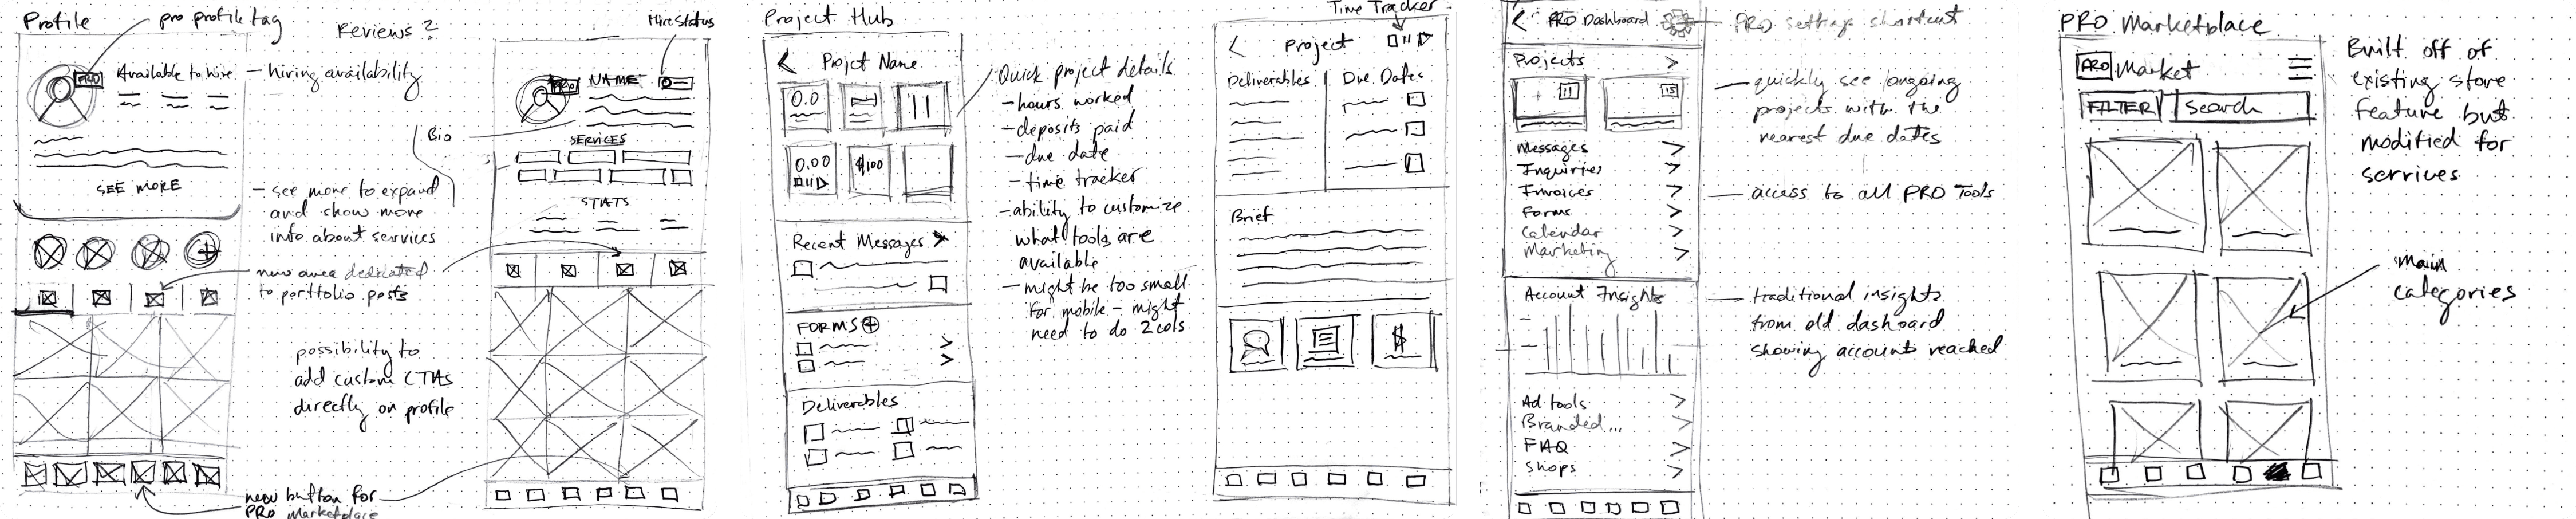 Profile
pro profile tag
Reviews?
Hire Status
PRO
Available to hire
— hiring availability
PRO
NAME
Bio
SERVICES
SEE MORE
— see more to expand
and show more
info about services
STATS
new area dedicated
to portfolio posts
possibility to
add custom CTAs
directly on profile
new button for
PRO Marketplace
Project Hub
Time Tracker
< Projct Name
0.0
0.00
$100
Recent Messages >
FORMS +
>
>
Deliverables
Quick project details
- hours worked
- deposits paid
- due date
- time tracker
- ability to customize
what tools are
available
- might be too small
for mobile - might
need to do 2 cols
< Project
Deliverables
Due Dates
Brief
$
< PRO Dashboard
— PRO settings shortcut
Projects >
11
15
— quickly see ongoing
projects with the
nearest due dates
Messages >
Inquiries >
Invoices >
Forms >
Calendar >
Marketing >
— access to all PRO Tools
Account Insights
— traditional insights
from old dashoard
showing account reached
Ad tools >
Branded... >
FAQ >
Shops >
PRO Marketplace
PRO Market
FILTER
Search
Built off of
existing store
feature but
modified for
services
main
categories